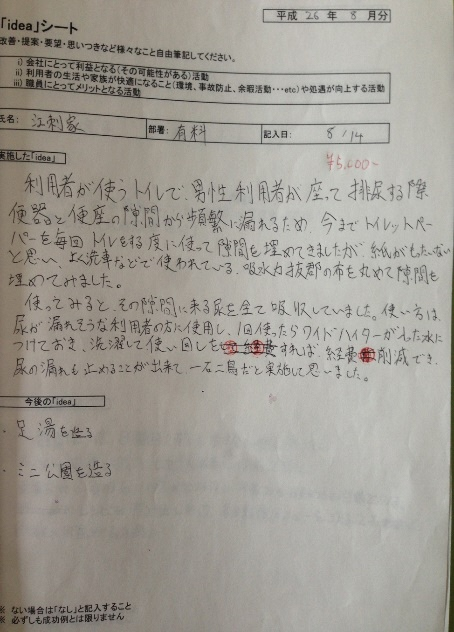 平成 26 年 8 月分
「idea」シート
改善・提案・要望・思いつきなど様々なこと自由筆記してください。
i) 会社にとって利益となる(その可能性がある)活動
ii) 利用者の生活や家族が快適になること(環境、事故防止、余暇活動・・・etc)や処遇が向上する活動
iii) 職員にとってメリットとなる活動
氏名: 江刺家 部署: 有料 記入日: 8/14
実施した「idea」
¥5,000-
利用者が使うトイレで、男性利用者が座って排尿する際
便器と便座の隙間から頻繁に漏れるため、今までトイレットペー
パーを毎回トイレをする度に使って隙間を埋めてきましたが、紙がもったいない
と思い、よく洗車などで使われている、吸水力抜群の布を丸めて隙間を
埋めてみました。
使ってみると、その隙間に来る尿を全て吸収していました。使い方は、
尿が漏れそうな利用者の方に使用し、1回使ったらワイドハイターが入った水に
つけておき、洗濯して使い回しをすれば、経費削減でき、
尿の漏れも止めることが出来て、一石二鳥だと実施して思いました。
今後の「idea」
・足湯を造る
・ミニ公園を造る
※ ない場合は「なし」と記入すること
※ 必ずしも成功例とは限りません